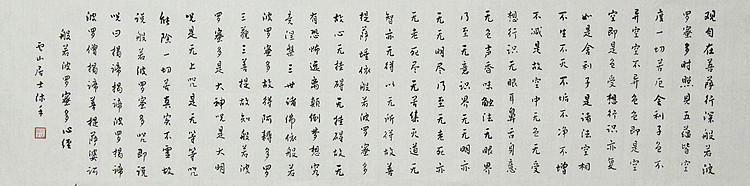 觀自在菩薩行深般若波
羅蜜多時照見五蘊皆空
度一切苦厄舍利子色不
異空空不異色色即是空
空即是色受想行識亦復
如是舍利子是諸法空相
不生不滅不垢不淨不增
不減是故空中无色无受
想行識无眼耳鼻舌身意
无色聲香味觸法无眼界
乃至无意識界无无明亦
无无明盡乃至无老死亦
无老死盡无苦集滅道无
智亦无得以无所得故菩
提薩埵依般若波羅蜜多
故心无挂礙无挂礙故无
有恐怖遠離顛倒夢想究
竟涅槃三世諸佛依般若
波羅蜜多故得阿耨多羅
三藐三菩提故知般若波
羅蜜多是大神咒是大明
咒是无上咒是无等等咒
能除一切苦真實不虛故
說般若波羅蜜多咒即說
咒曰揭諦揭諦波羅揭諦
波羅僧揭諦菩提薩婆訶
般若波羅蜜多心經
雲山居士沐手